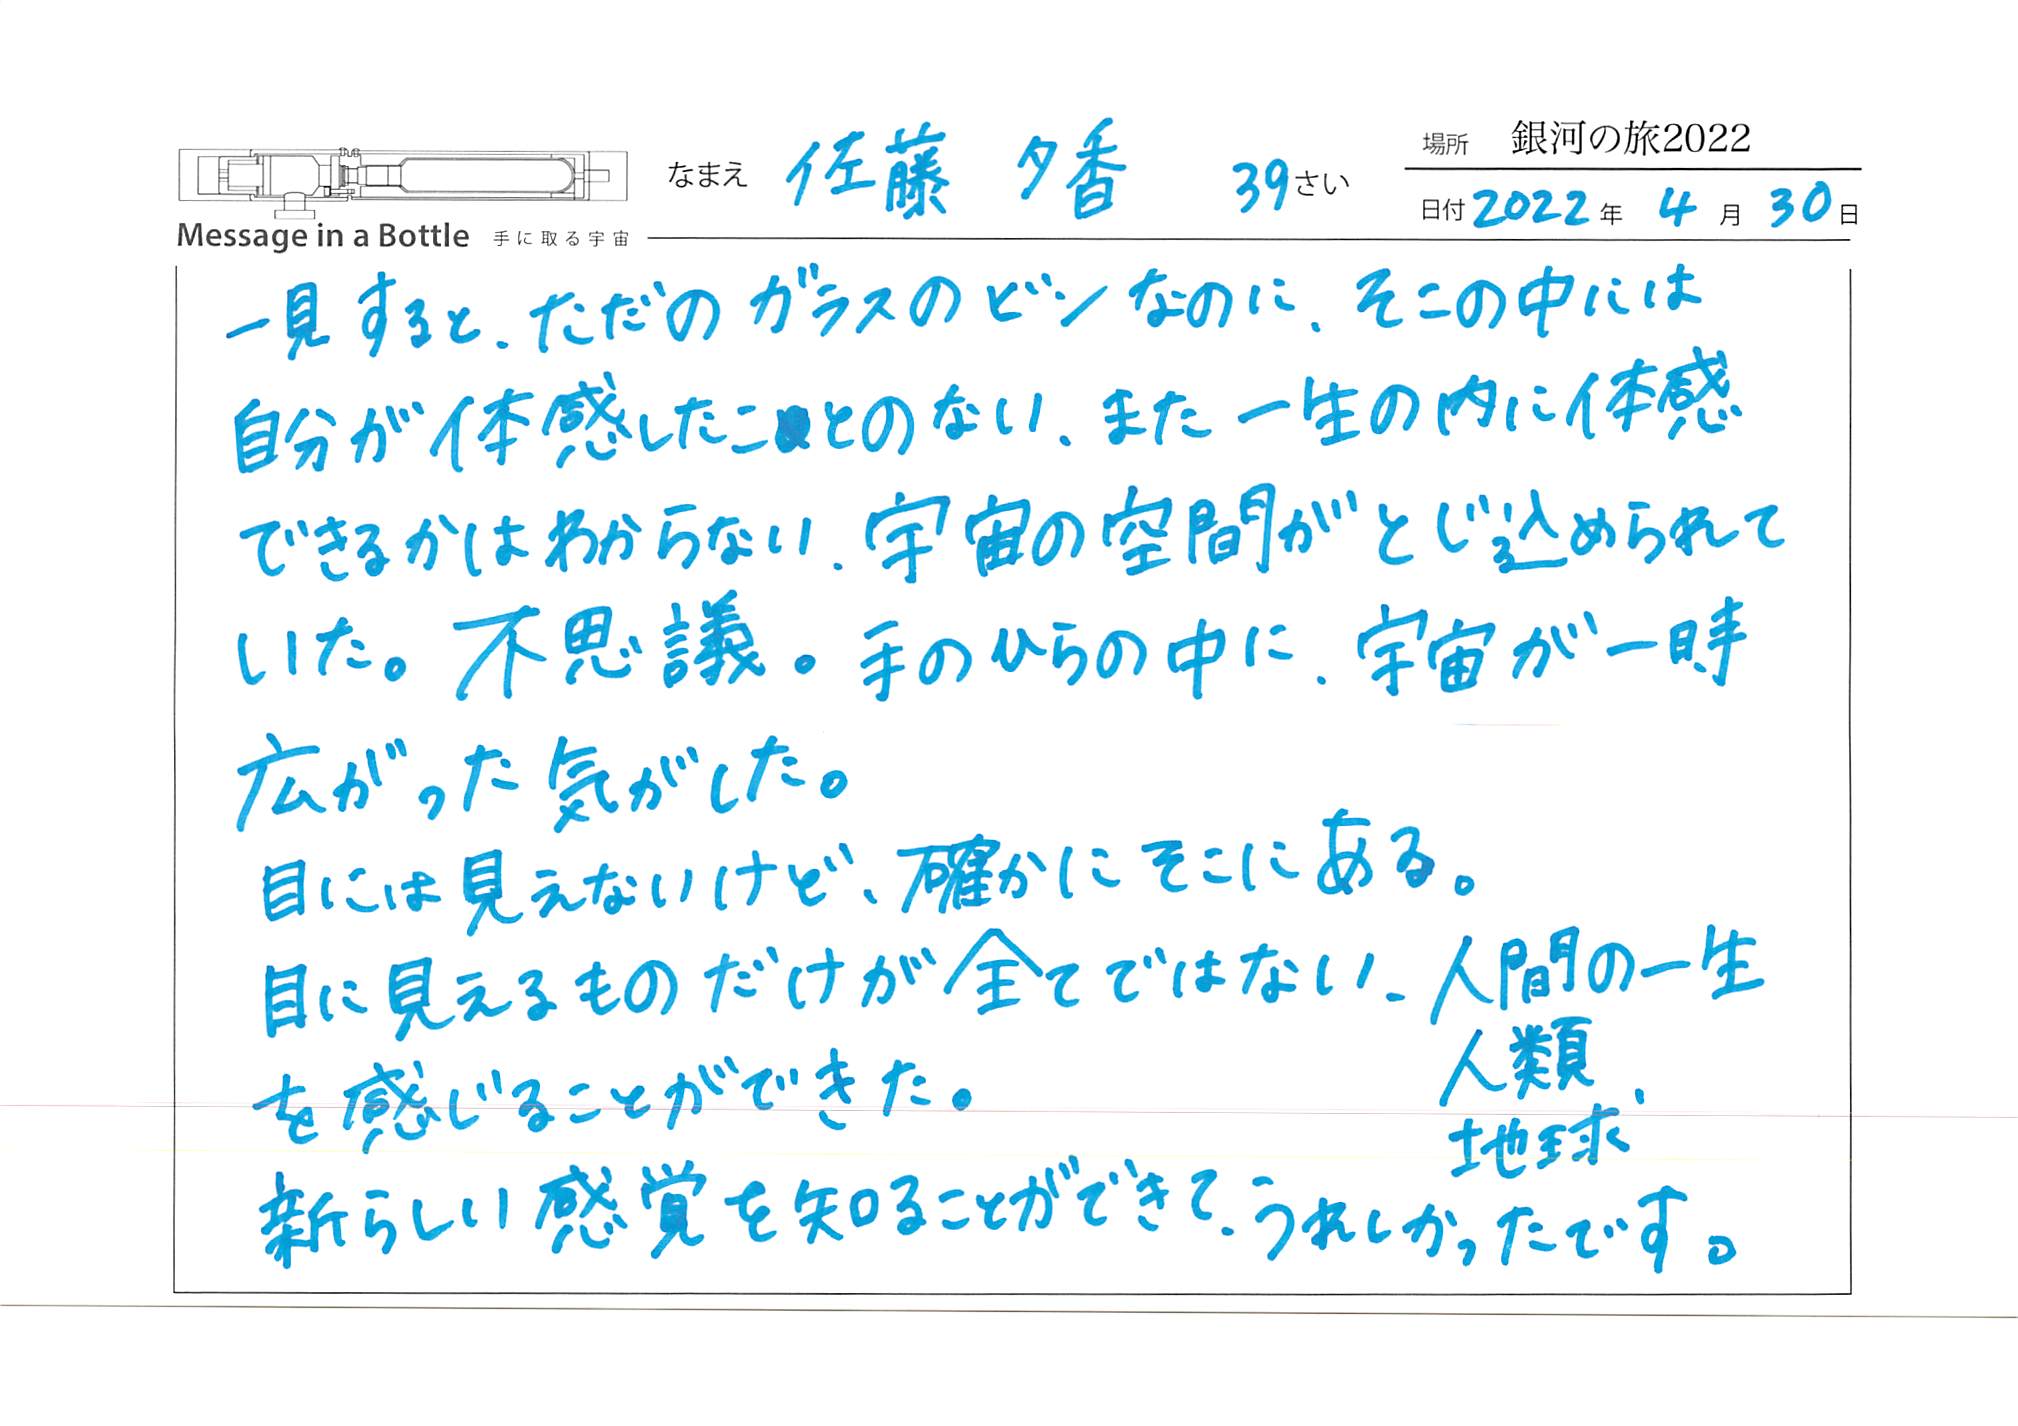 なまえ 佐藤 夕香 39さい
場所 銀河の旅2022
日付 2022年 4月 30日
Message in a Bottle 手に取る宇宙
一見すると、ただのガラスのビンなのに、そこの中には
自分が体感したことのない、また一生の内に体感
できるかはわからない、宇宙の空間がとじ込められて
いた。不思議。手のひらの中に、宇宙が一時
広がった気がした。
目には見えないけど、確かにそこにある。
目に見えるものだけが全てではない、人間の一生
人類、
地球
を感じることができた。
新らしい感覚を知ることができて、うれしかったです。